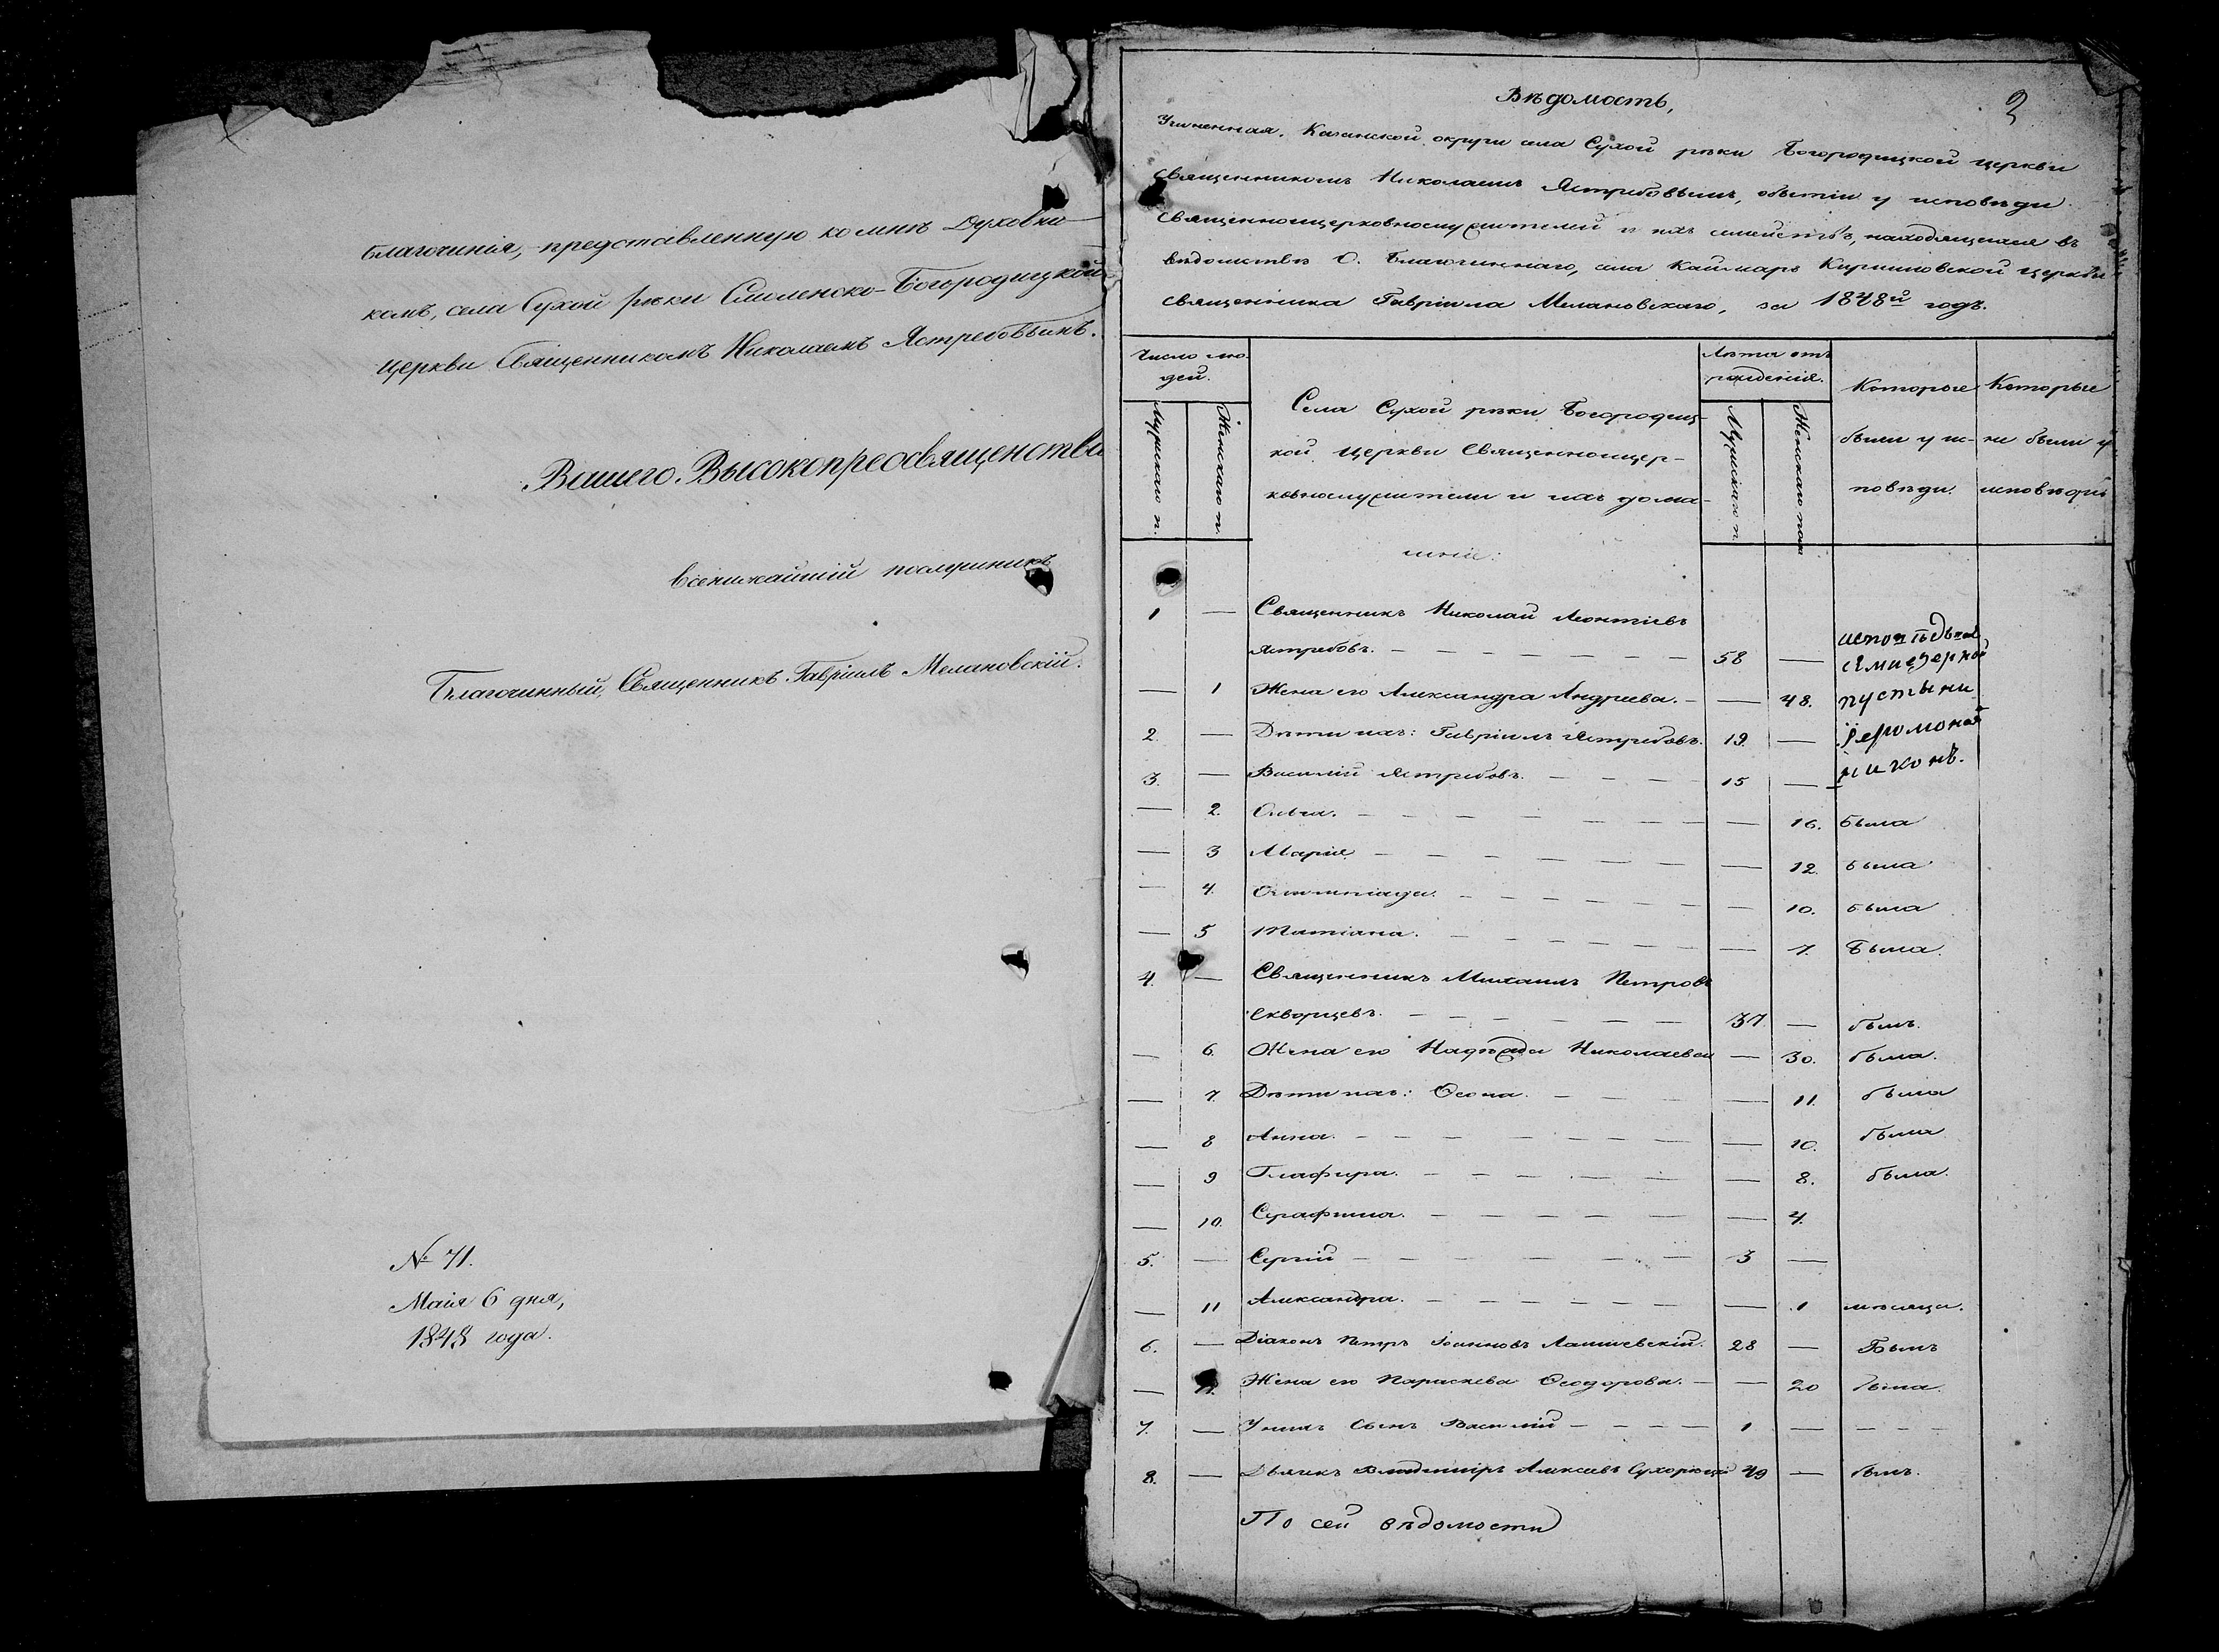 благочинія, представленную ко мнѣ Духовни-
комъ, села Сухой рѣки Смоленско-Богородицкой
церкви Священникомъ Николаемъ Ястребовымъ.
Вашего Высокопреосвященства
всенижайшій послушникъ
Благочинный, Священникъ Гавріилъ Мелановскій.
№ 71.
Маія 6 дня,
1848 года.
3
Вѣдомость,
Учиненная, Казанской округи села Сухой рѣки Богородицкой церкви
священникомъ Николаемъ Ястребовымъ, о бытіи у исповѣди
священноицерковнослужителей и ихъ семействъ, находящихся въ
вѣдомствѣ О. Благочиннаго, села Каймаръ Кирилловской церкви
священника Гавріила Мелановскаго, за 1848й годъ.
Число лю-
дей.
Мужскаго п.
Женскаго п.
Села Сухой рѣки Богородиц-
кой церкви Священноицер-
ковнослужители и ихъ дома-
шніе:
Лѣта отъ
рожденія.
Мужскаго п.
Женскаго пола
Которые
были у ис-
повѣди.
Которые
не были у
исповѣди
1 — Священникъ Николай Леонтіевъ
Ястребовъ. — 58 —
— 1 Жена его Александра Андреева. — — 48.
2. — Дѣти ихъ: Гавріилъ Ястребовъ. 19. —
3. — Василій Ястребовъ. — 15 —
исповѣдывал
семиезерной
пустыни
Іеромонах
никонъ.
— 2. Ольга. — — 16. Была
— 3 Марія — — 12. была
— 4. Олимпіада. — — 10. была
— 5 Татіана. — — 7. Была.
4. — Священникъ Михаилъ Петровъ
Скворцевъ. — 37. — былъ.
— 6. Жена его Надежда Николаевна — 30. была.
— 7. Дѣти ихъ: Ѳеона. — — 11. была
— 8 Анна. — — 10. была
— 9 Глафира. — — 8. была.
— 10. Серафима. — — 4.
5. — Сергій — 3 —
— 11 Александра. — — 1 мѣсяца.
6. — Діаконъ Петръ Іоанновъ Лаишевскій. 28 — Былъ
— Жена его Параскева Ѳеодорова. — — 20 была.
7. — У нихъ Сынъ Василій — 1 — —
8. — Дьячекъ Владиміръ Алексѣевъ 49 — былъ.
По сей вѣдомости